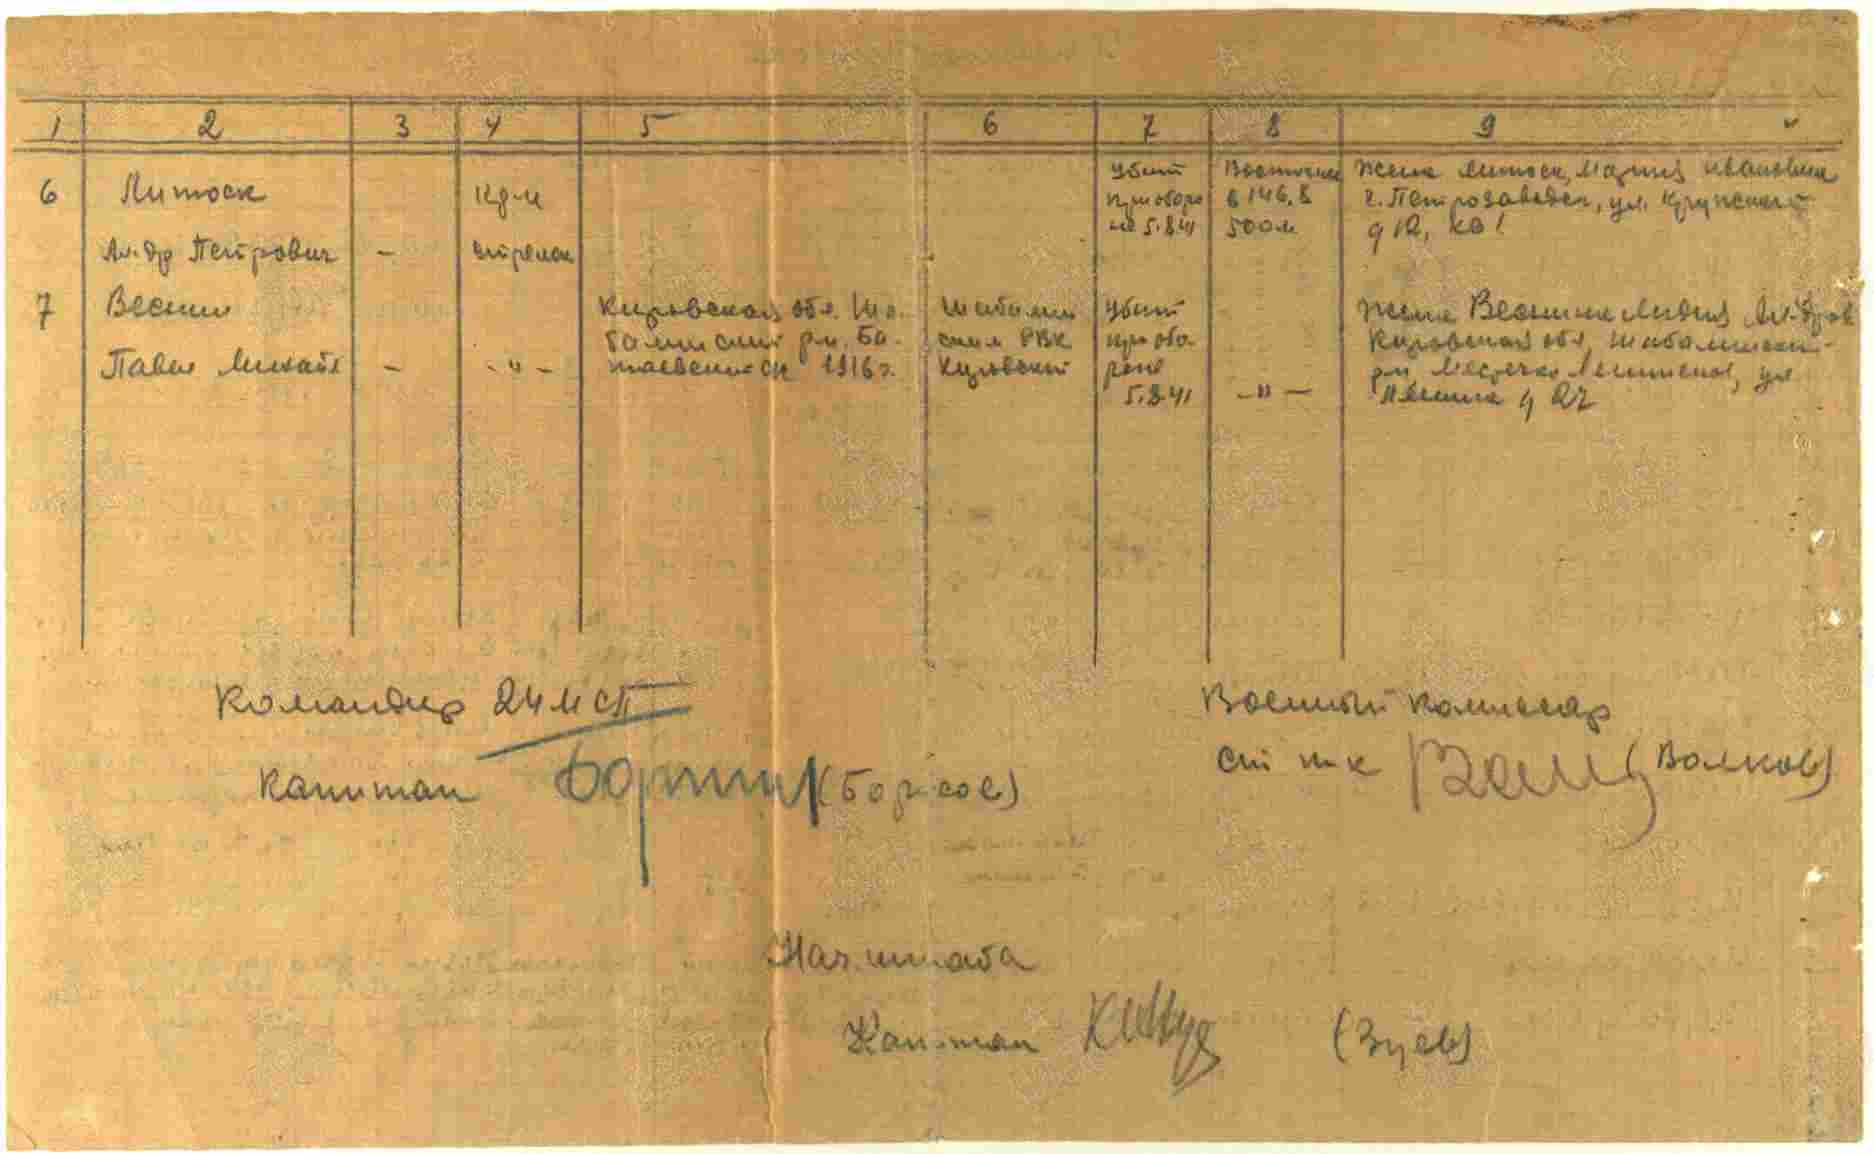 1 2 3 4 5 6 7 8 9
6 Литоск
Ал-др Петрович
—
кр-ц
стрелок
Убит
при оборо
не 5.8.41
Восточнее
в 146,8
500 м
Жена Литоск Мария Ивановна
г. Петрозаводск, ул. Крупской
д 12, кв 1
7 Веснин
Павел Михайл
—
-"-
Кировская обл. Ша-
балинский р-н,
1916 г.
Шабалин
ским РВК
Кировской
Убит
при обо
роне
5.8.41
-"-
Жена Веснина Лидия Ал-дров
Кировская обл, Шабалински-
р-н местечко Ленинское, ул
Ленина д 27
Командир 24 МСП
Капитан (Борисов)
Военный комиссар
ст п-к (Волков)
Нач. штаба
Капитан (Зуев)